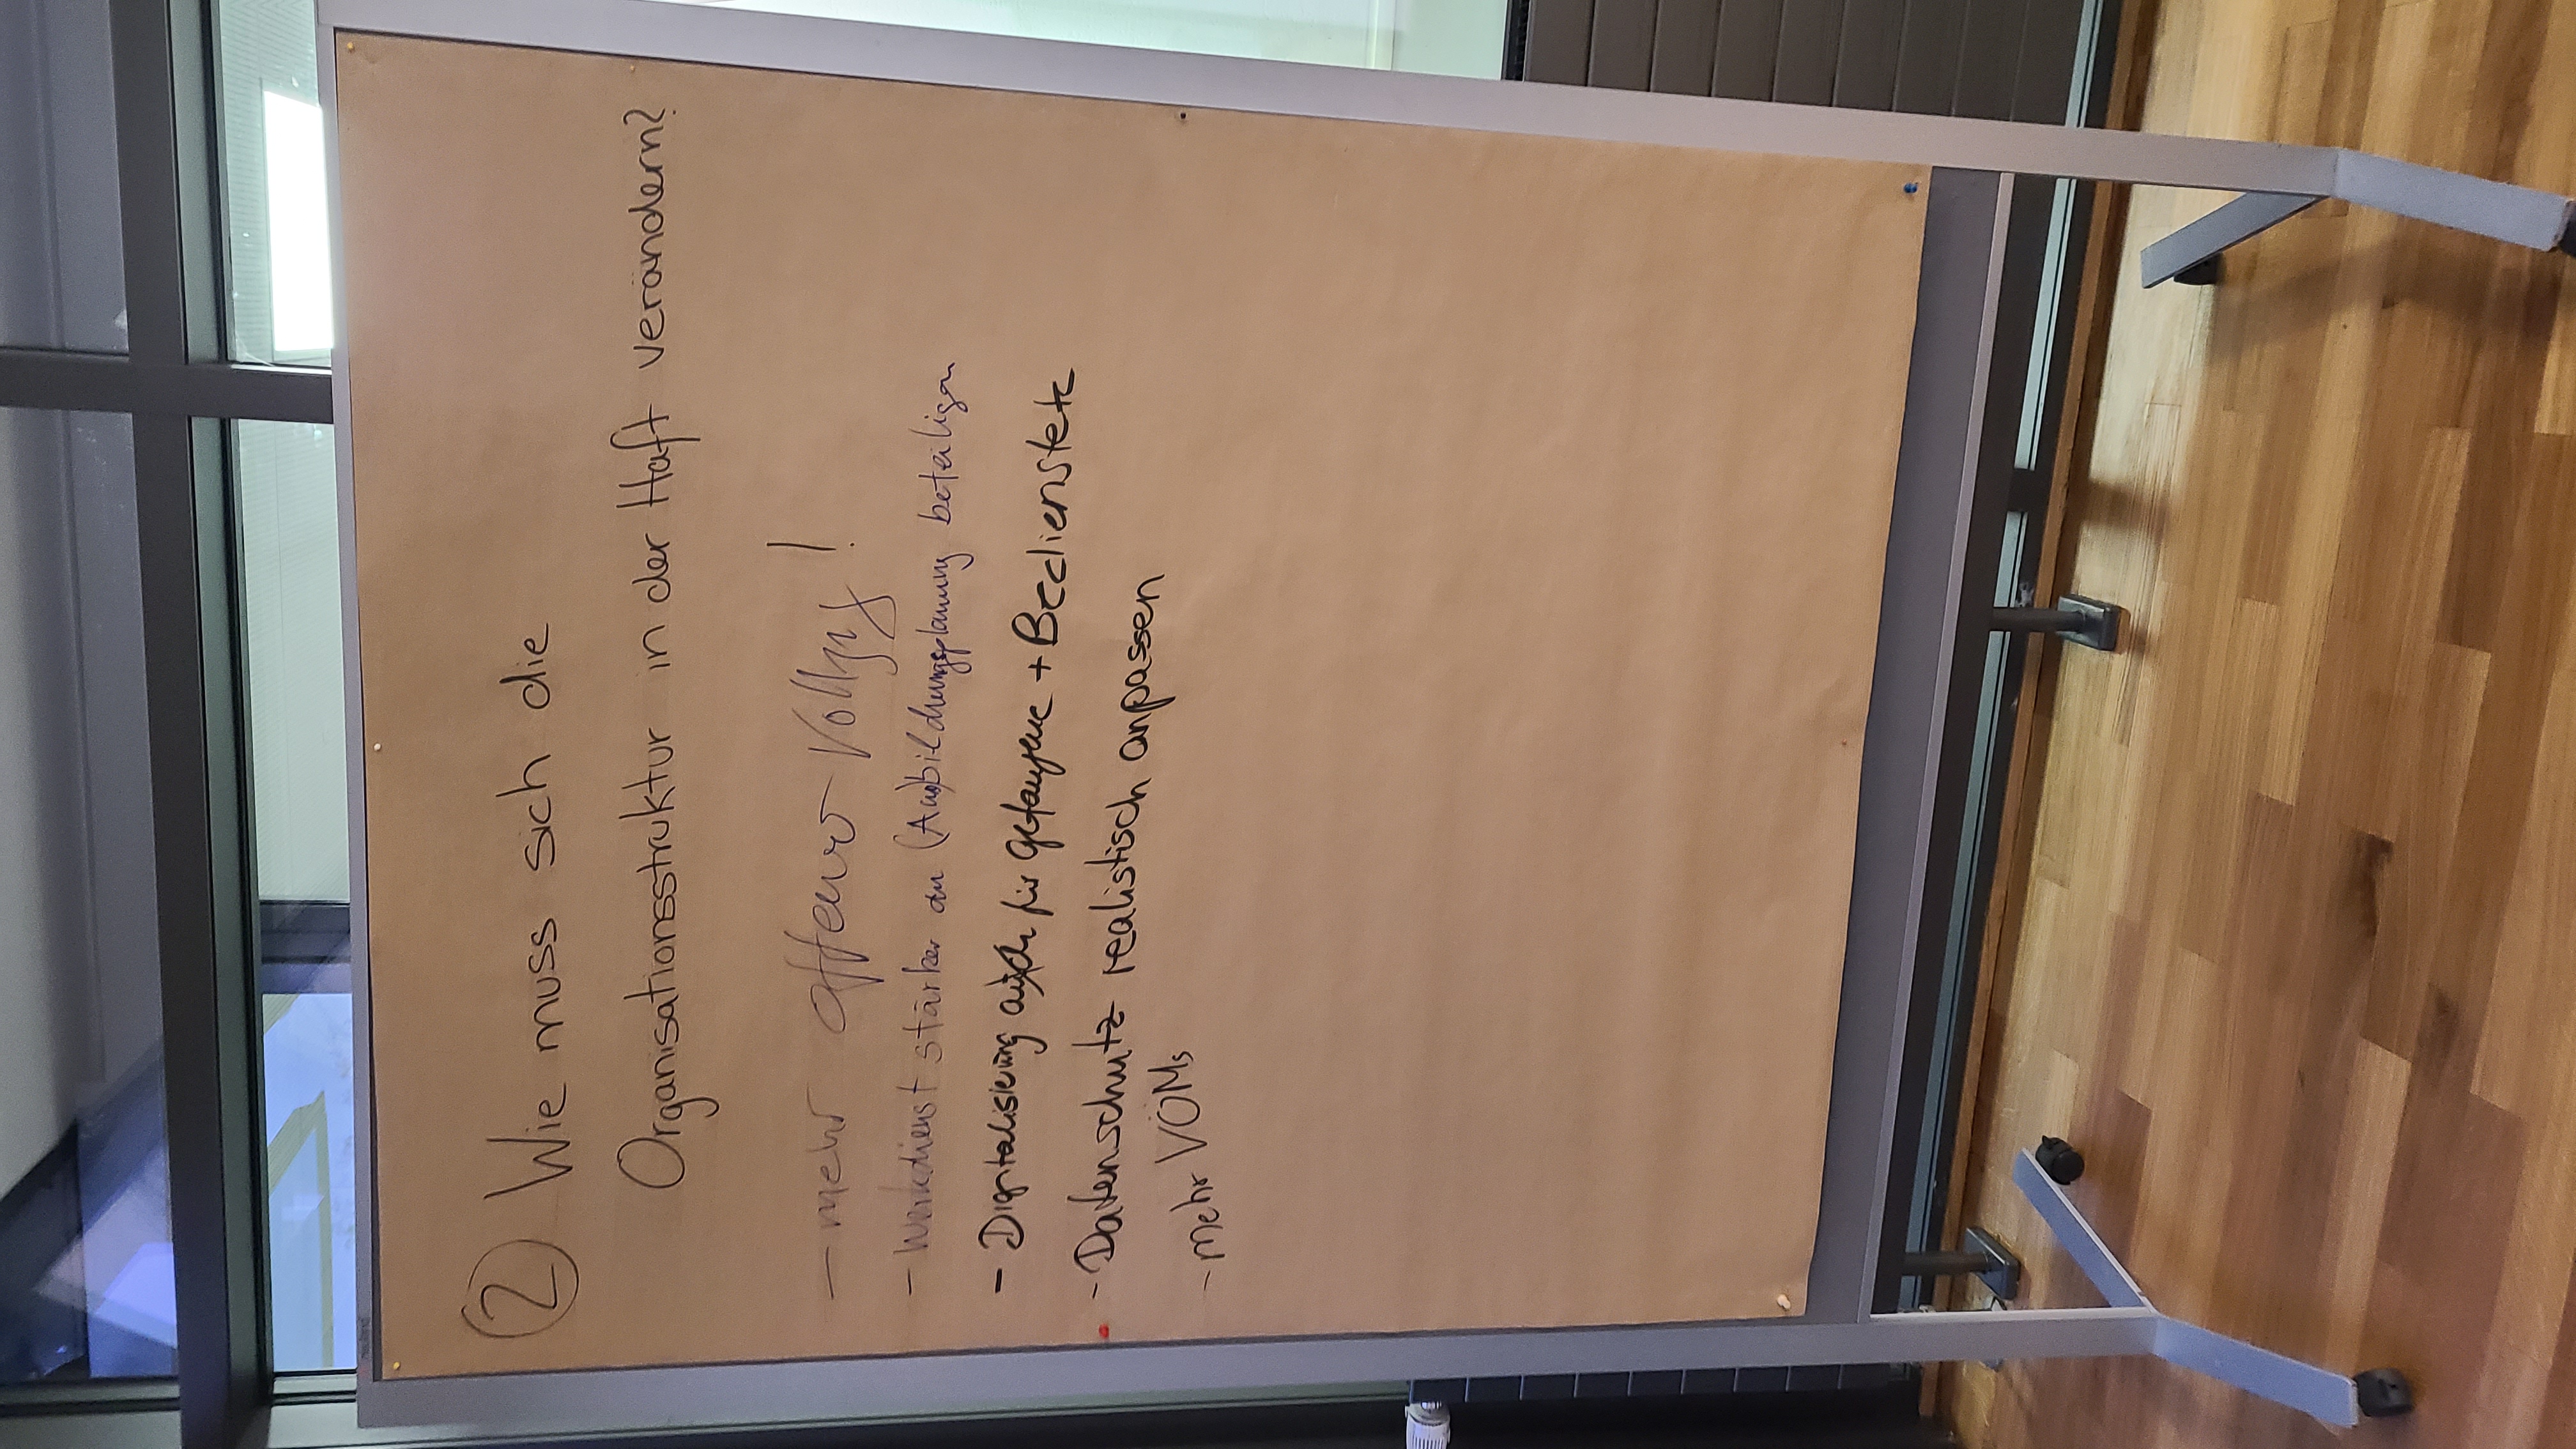 ② Wie muss sich die
Organisationsstruktur in der Haft verändern?
- mehr offener Vollzug!
- Werkdienst stärker an (Aus)bildungsplanung beteiligen
- Digitalisierung auch für Gefangene + Bedienstete
- Datenschutz realistisch anpassen
- mehr VÖMs